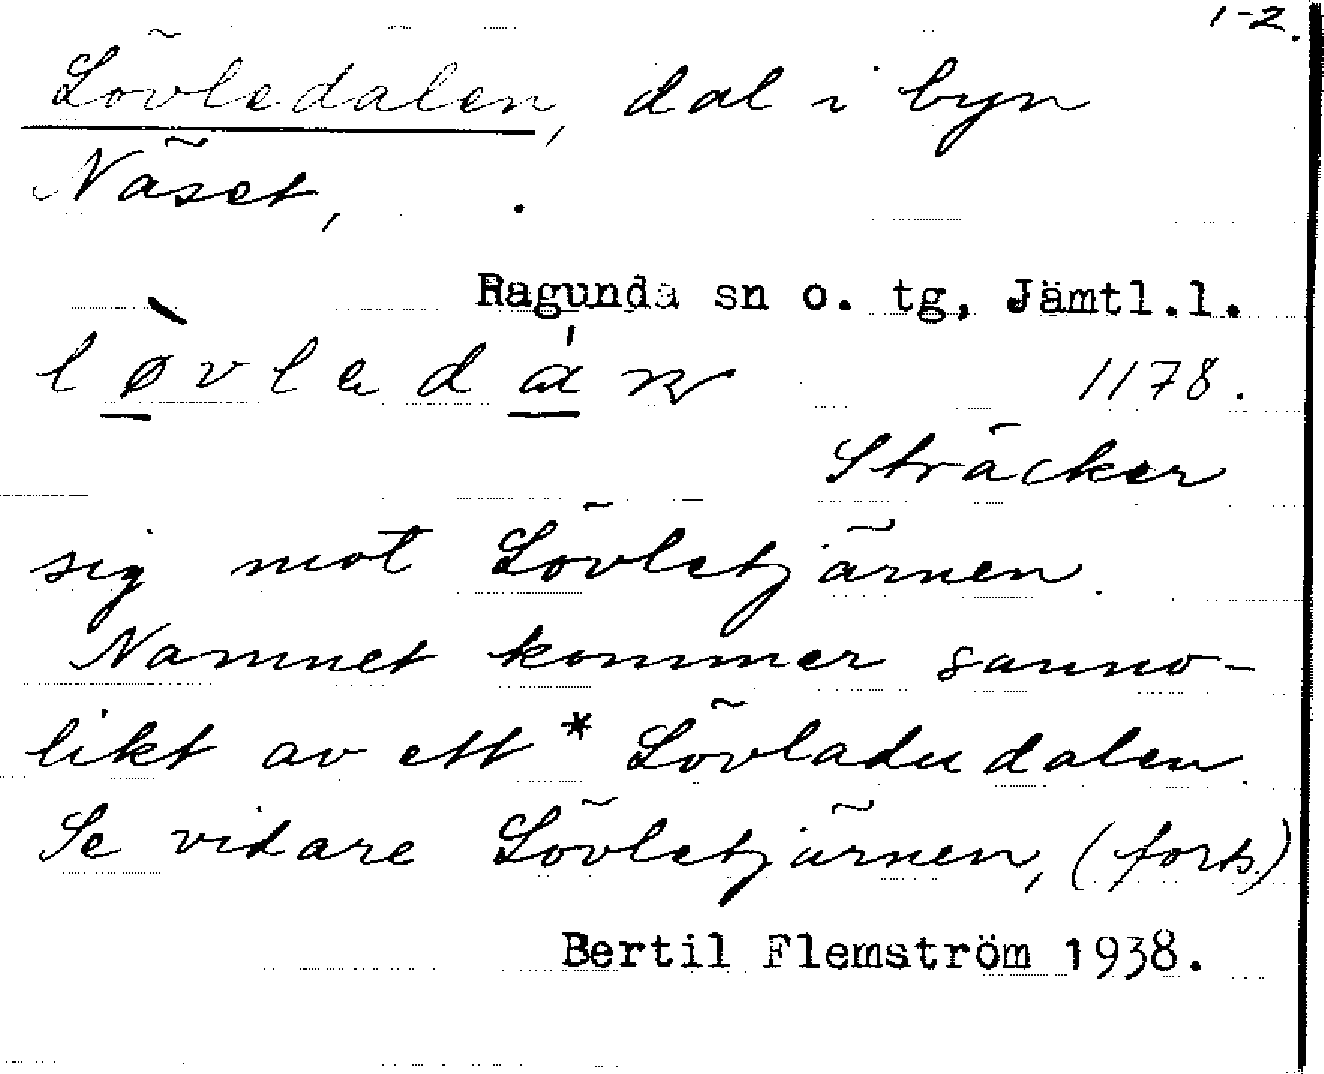 1-2.
Lövledalen, dal i byn
Näset, .
Ragunda sn o. tg, Jämtl.l.
1178.
Sträcker
sig mot Lövletjärnen.
Namnet kommer sanno-
likt av ett *Lövladudalen.
Se vidare Lövletjärnen, (forts.)
Bertil Flemström 1938.